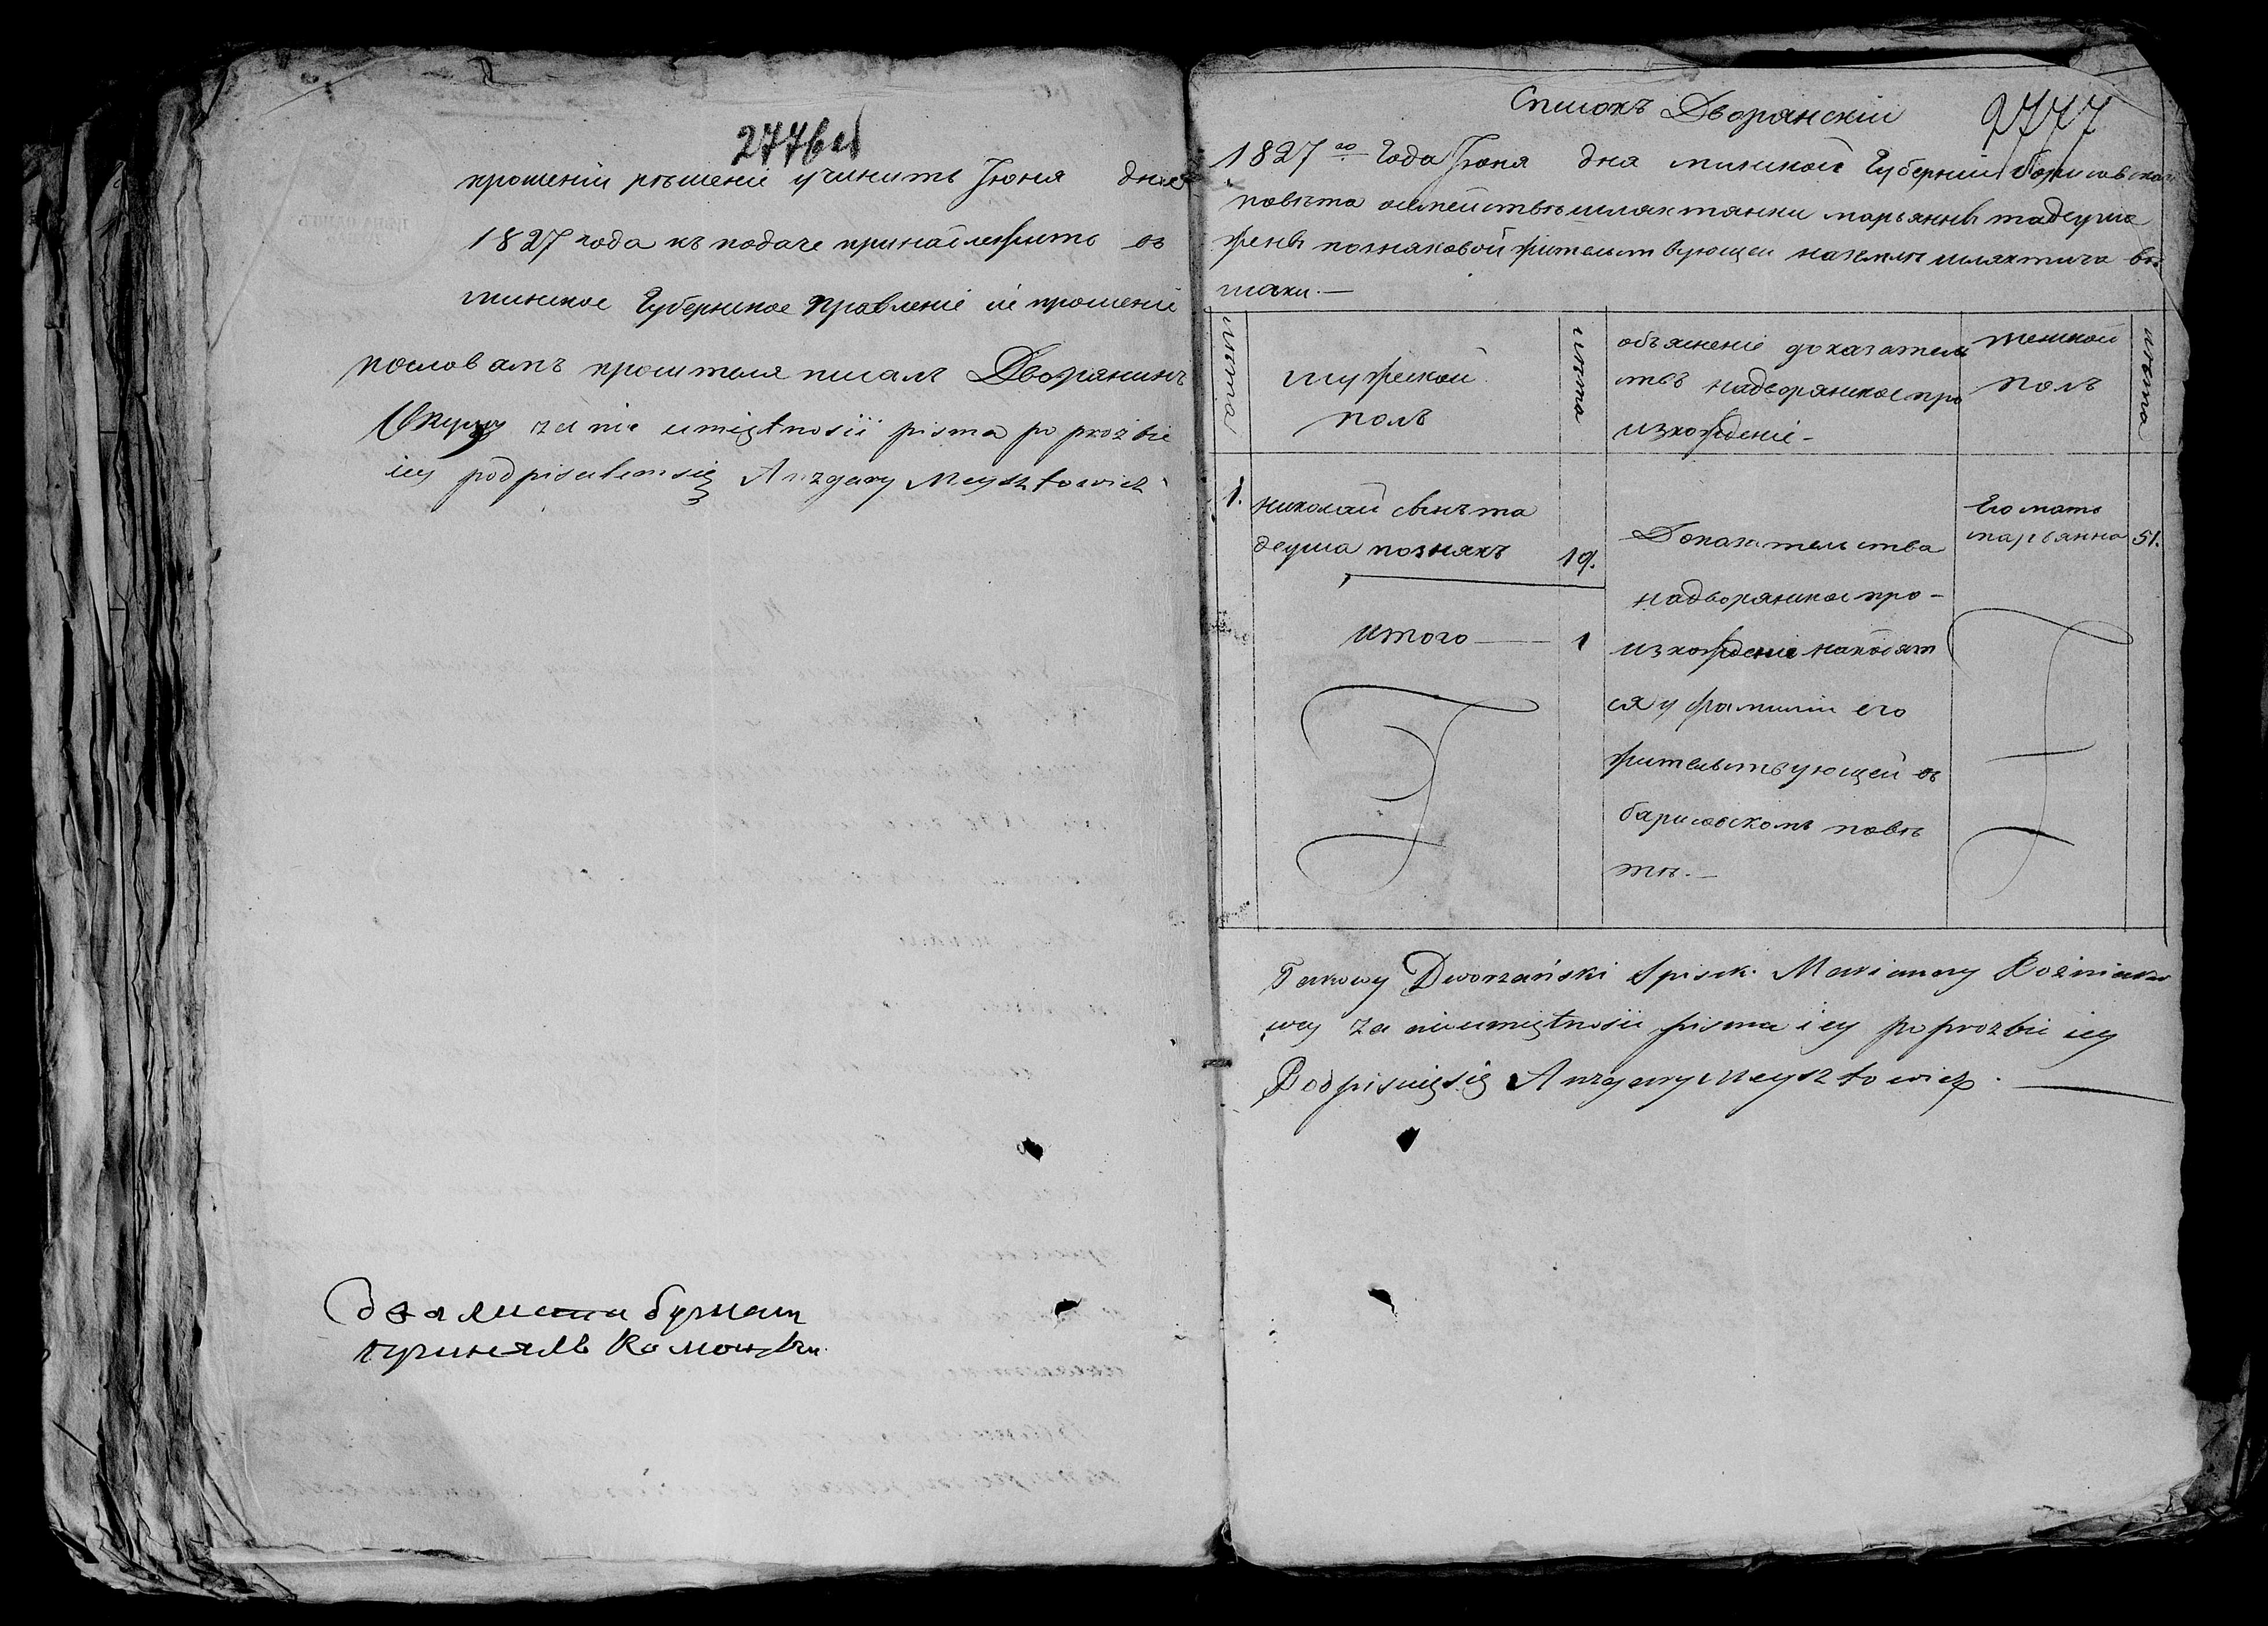 276об
прошеніи рѣшеніе учинить Іюня дня
1827 года къ подаче принадлежитъ въ
минское Губернское Правленіе сіе прошеніе
пословамъ просителя писалъ Дворянинъ
za nie umiętnosii pisma po prozbie
iey podpisałemsię Anzgary Meysztowicz
два листи бумаги
принялъ
Списокъ Дворянскій
277
1827го Года Іюня дня минской Губерніи Борисовскаго
повѣта осемействѣ шляхтянки марьянны тадеуша
жены позняковой жительствующей наземлѣ шляхтича
лѣта
мужеской
полъ
лѣта
объясненіе доказатель
ствъ надворянское про
изхожденіе -
женской
полъ
лѣта
1. николай сынъ та
деуша познякъ 19.
итого — 1
Доказательства
надворянское про-
изхожденіе находят
ся у фамиліи его
жительствующей въ
барисовскомъ повѣ
тѣ. —
Его мать
марьянна 51.
Takowy Dworzański Spisek Marianny Pozniako
wey za nieumiętnosii pisma iey po prozbie iey
Podpisuięsię Anzgary Meysztowicz. —